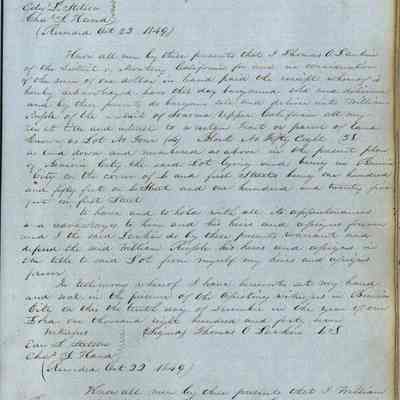 Edw L. Stetson
Chas. S. Hand
(Recorded Oct 22 1849)
Know all men by these presents that I Thomas O Larkin
of the District of Monterey California for and in consideration
of the sum of one dollar in hand paid the receipt whereof is
hereby acknowledged have this day bargained sold and delivered
and by these presents do bargain sell and deliver unto William
of the District of Sonoma Upper California all my
right title and interest to a certain tract or parcel of land
known as Lot No Four (4) Block No Fifty Eight 58
as laid down and numbered as above on the present plan
of Benicia City the said Lot lying and being in Benicia
City on the corner of and first Streets being one hundred
and fifty feet on Street and one hundred and twenty five
feet on first Street
To have and to hold with all its appurtenances
and advantages to him and his heirs and assigns forever
and I the said Larkin do by these presents warrant and
defend the said William his heirs and assigns in
the title to said Lot from myself my heirs and assigns
forever
In testimony whereof I have hereunto set my hand
and seal in the presence of the attesting witnesses in Benicia
City on this the tenth day of December in the year of our
Lord one thousand eight hundred and forty seven
Witnesses (Signed) Thomas O Larkin LS
Edw L Stetson
Chas. S. Hand
(Recorded Oct 22 1849)
Know all men by these presents that I William